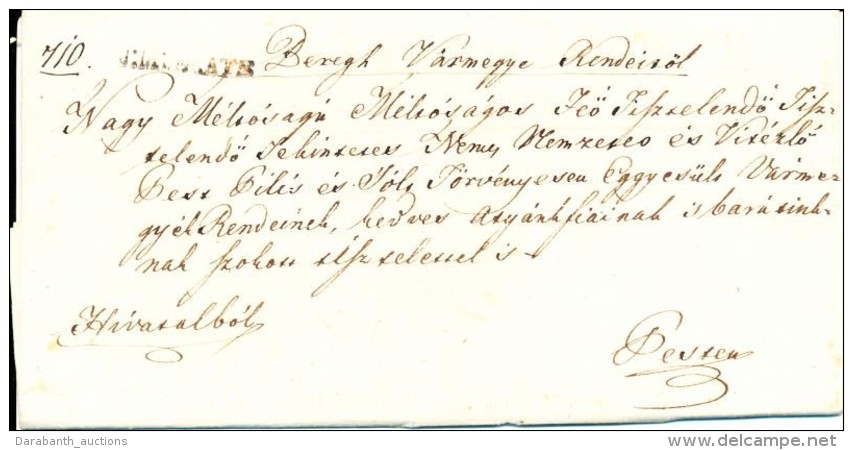 710. Beregh Vármegye Rendeiről
Nagy Méltóságú Méltóságos Feő Tisztelendő Tisz-
telendő Tekintetes Nemes Nemzetes és Vitézlő
Pest Pilis és Sólt Törvényesen Eggyesült Várme-
gyék Rendeinek, kedves Atyánkfiainak is barátink-
nak szokott tisztelettel is
Hivatalból
Pesten
Darabanth_auctions
www.delcampe.net